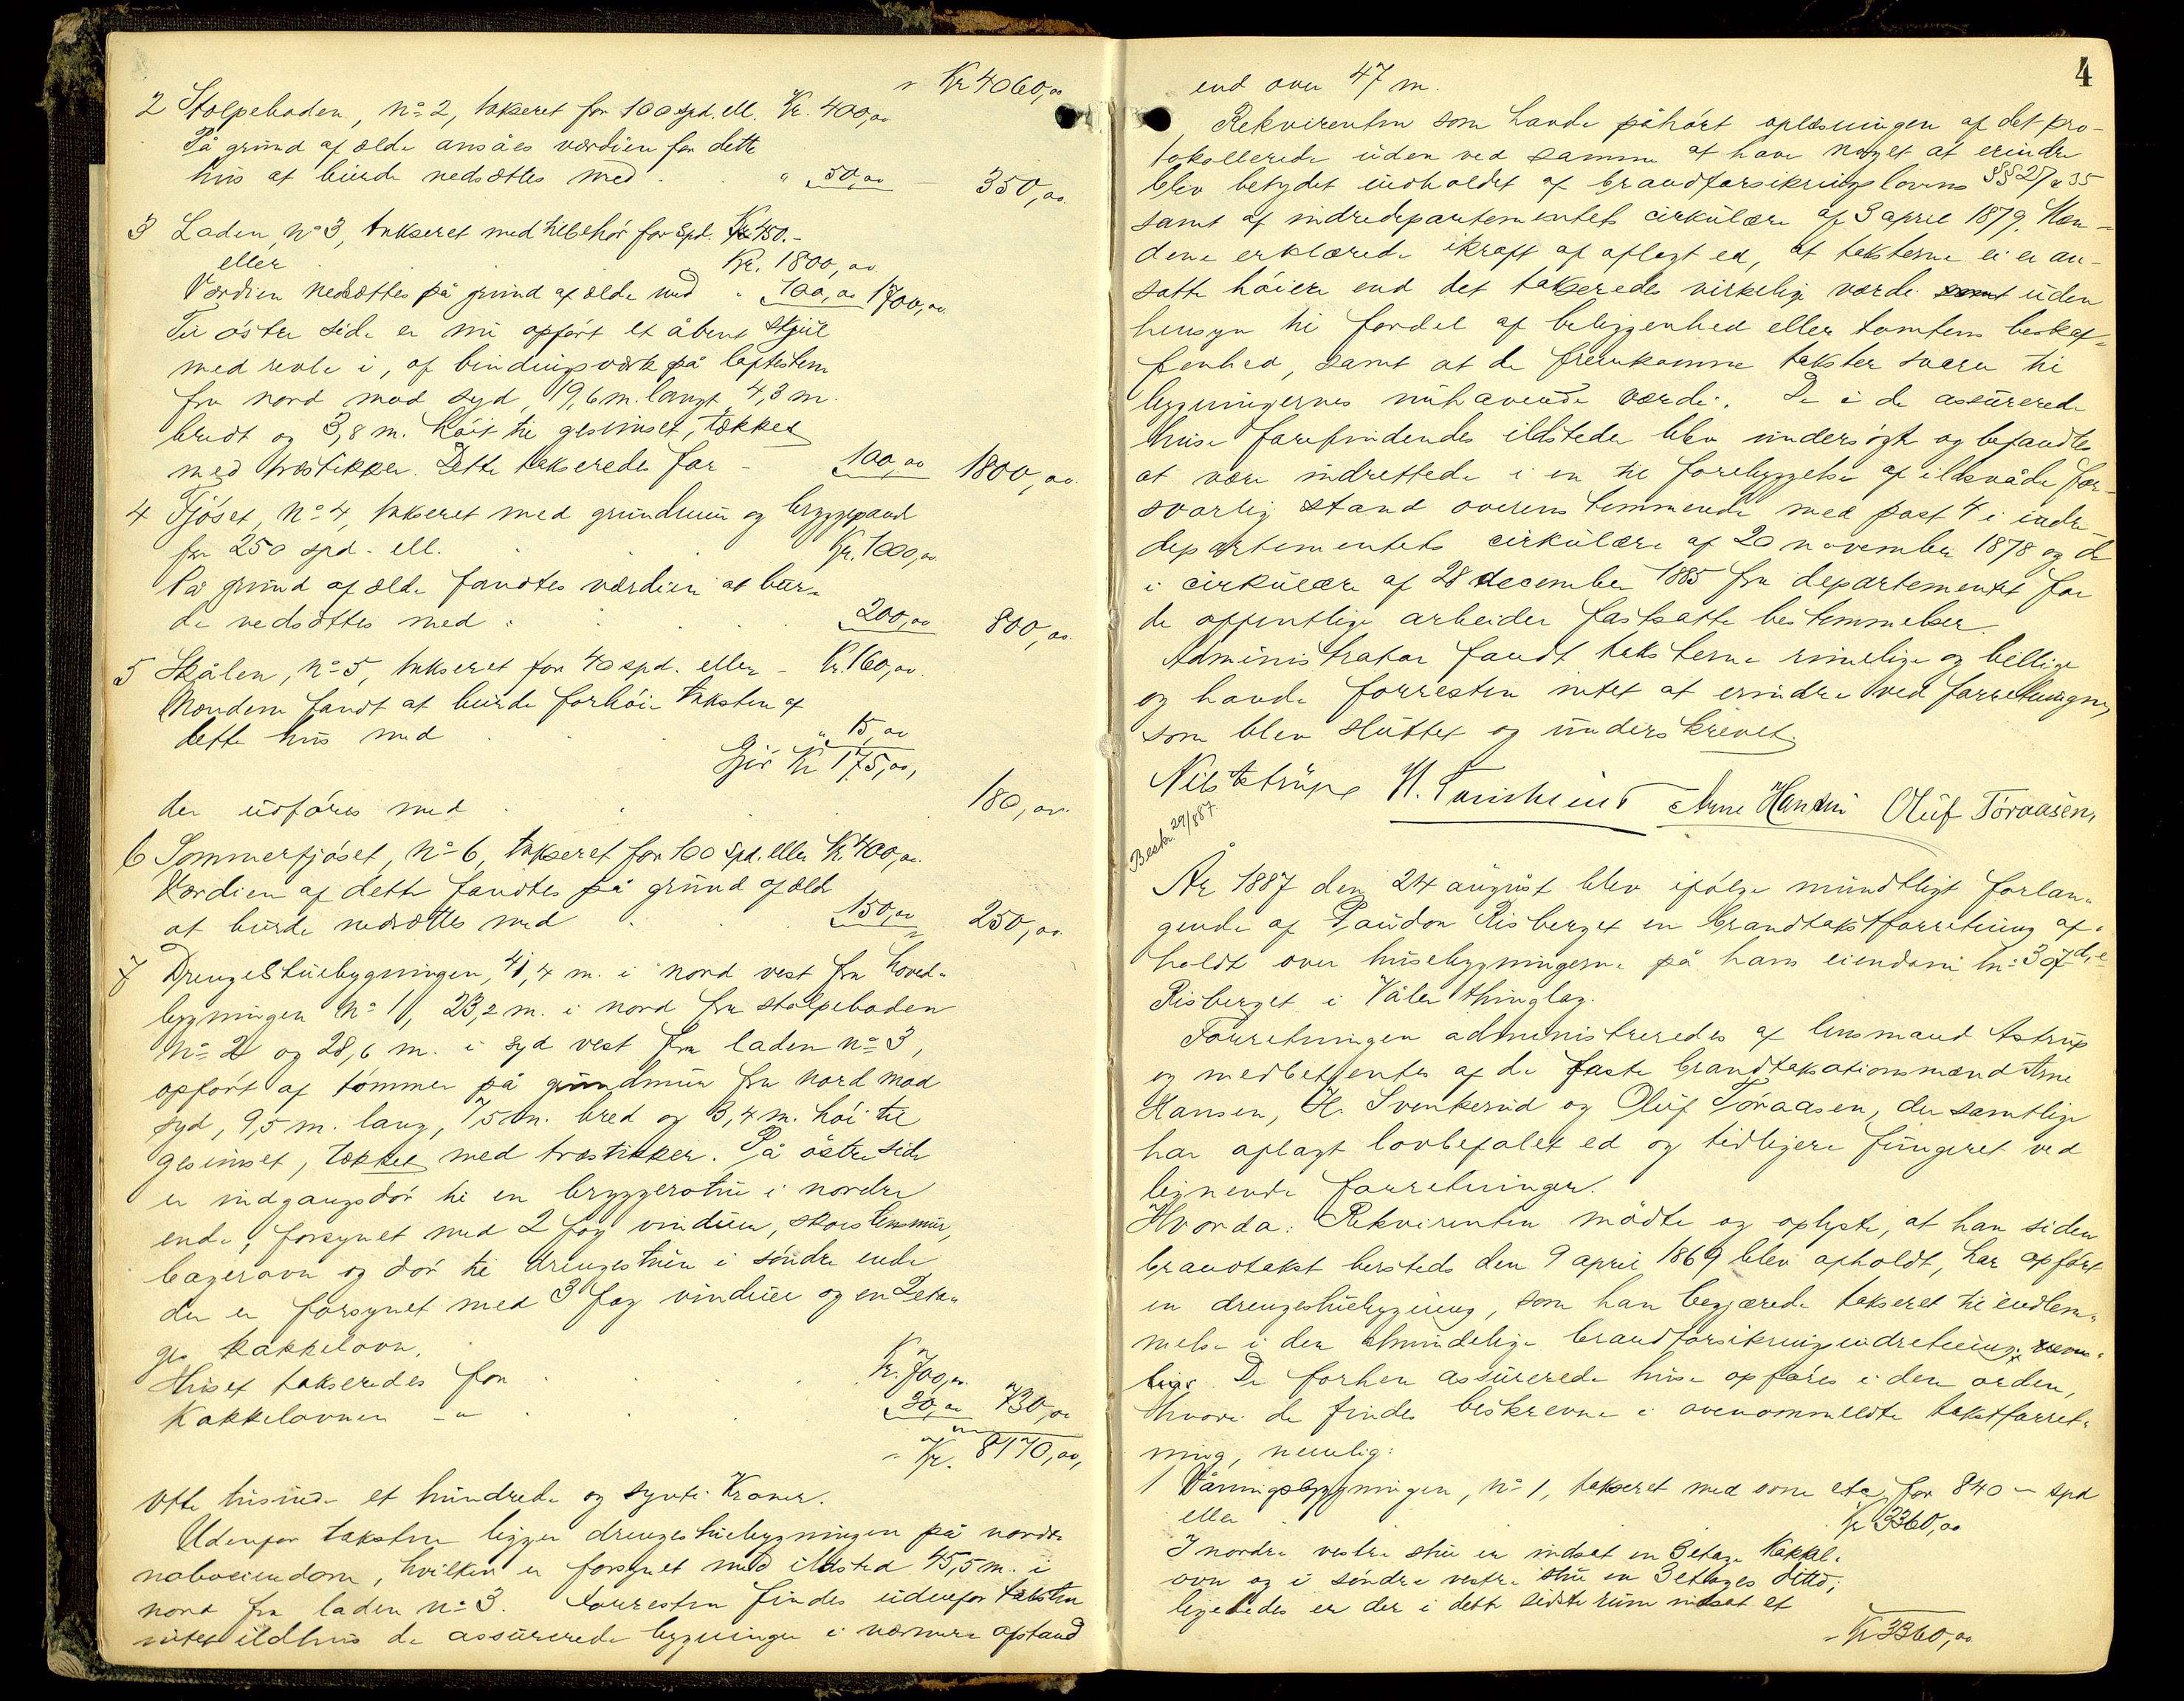 " Kr 4060,00
2 Stolpeboden, No 2, takseret for 100 spd. ell. Kr. 400,00
På grund af ælde ansåes værdien for dette
hus at burde nedsættes med . . " 50,00 350,00.
3 Laden, No 3, takseret med tilbehör for Spd. 450.-
eller . . . Kr. 1800,00
Værdien nedsættes på grund af ælde med " 100,00 1700,00.
Til östre side er nu opfört et åbent skjul
med revle i, af bindingsværk på loftssten
fra nord mod syd, 19,6 m. langt, 4,3 m.
bredt og 3,8 m. höit til gesimset, tækket
med træstikker. Dette takseredes for - 100,00 1800,00.
4 Fjöset, No 4, takseret med grundmur og bryggepande
for 250 spd. ell. . . Kr. 1000,00
På grund af ælde fandtes værdien at bur-
de nedsættes med . . . 200,00 800,00.
5 Skålen, No 5, takseret for 40 spd. eller - Kr. 160,00.
Mændene fandt at burde forhöie taksten af
dette hus med . . . " 15,00
Gjör Kr 175,00,
der udföres med . . . 180,00.
6 Sommerfjöset, No 6, takseret for 100 Spd. eller Kr 400,00.
Værdien af dette fandtes på grund af ælde
at burde nedsættes med . . 150,00 250,00.
7 Drengestuebygningen, 41,4 m. i nord vest fra hoved-
bygningen No 1, 23,2 m. i nord fra stolpeboden
No 2 og 28,6 m. i syd vest fra laden No 3,
opfört af tömmer på grundmur fra nord mod
syd, 9,5 m. lang, 7,5 m. bred og 3,4 m. höi til
gesimset, tækket med træstikker. På östre side
er indgangsdör til en bryggerstue i nordre
ende, forsynet med 2 fag vinduer, skorstensmur,
bagerovn og dör til drengestuen i söndre ende
der er forsynet med 3 fag vinduer og en 2 eta-
ges kakkelovn.
Huset takseredes for . . . Kr. 700,00.
Kakkelovnen - " . . 30,00 730,00
" Kr. 8170,00,
Otte tusinde et hundrede og sytti Kroner.
Udenfor taksten ligger drengestuebygningen på nordre
naboeiendom, hvilken er forsynet med ildsted 45,5 m. i
nord fra laden No 3. Forresten findes udenfor taksten
intet ildhus de assurerede bygninger i nærmere afstand
4
end over 47 m.
Rekvirenten som havde påhört oplæsningen af det pro-
tokollerede uden ved samme at have noget at erindre
blev betydet indholdet af brandforsikringslovens §§ 27 & 35
samt af indredepartementets cirkulære af 3 april 1879. Mæn-
dene erklærede ikraft af aflagt ed, at taksterne ei er an-
satte höiere end det takseredes virkelige værdi uden
hensyn til fordel af beliggenhed eller tomtens beskaf-
fenhed, samt at de fremkomne takster svarer til
bygningernes nuhavende værdi. De i de assurerede
huse forefindendes ildsteder blev undersögt og befandtes
at være indrettede i en til forebyggelse af ildsvåde for-
svarlig stand overensstemmende med post 4 i indre-
departementets cirkulære af 20 november 1878 og de
i cirkulære af 28 december 1885 fra departementet for
de offentlige arbeider fastsatte bestemmelser.
Administrator fandt taksterne rimelige og billige
og havde forresten intet at erindre ved forretningen,
som blev sluttet og underskrevet.
Nils Astrup H. Svenkerud Arne Hansen Oluf Töraasen,
Beskr. 29/8 87.
År 1887 den 24 august blev ifölge mundtligt forlan-
gende af Paudon Risberget en brandtakstforretning af-
holdt over husebygningerne på hans eiendom
Risberget i Våler thinglag.
Forretningen administreredes af lensmand Astrup
og medbetjentes af de faste brandtaksationsmænd Arne
Hansen, H. Svenkerud og Oluf Töraasen, der samtlige
har aflagt lovbefalet ed og tidligere fungeret ved
lignende forretninger.
Hvorda: Rekvirenten mödte og oplyste, at han siden
brandtakst hersteds den 9 april 1869 blev afholdt, har opfört
en drengestuebygning, som han begjærede takseret til indlem-
melse i den almindelige brandforsikringsindretning.
De forhen assurerede huse opföres i den orden,
hvori de findes beskrevne i ovenommeldte takstforret-
ning, nemlig:
1 Våningsbygningen, No 1, takseret med ovne etc, for 840 - spd
eller . . . Kr 3360,00
I nordre vestre stue er indsat en 3 etage Kakkel-
ovn og i söndre vestre stue en 3 etages ditto;
ligeledes er der i dette sidste rum indsat et
" Kr 3360,00